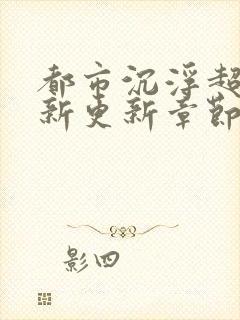 都市沉浮超
新更新章節
影四